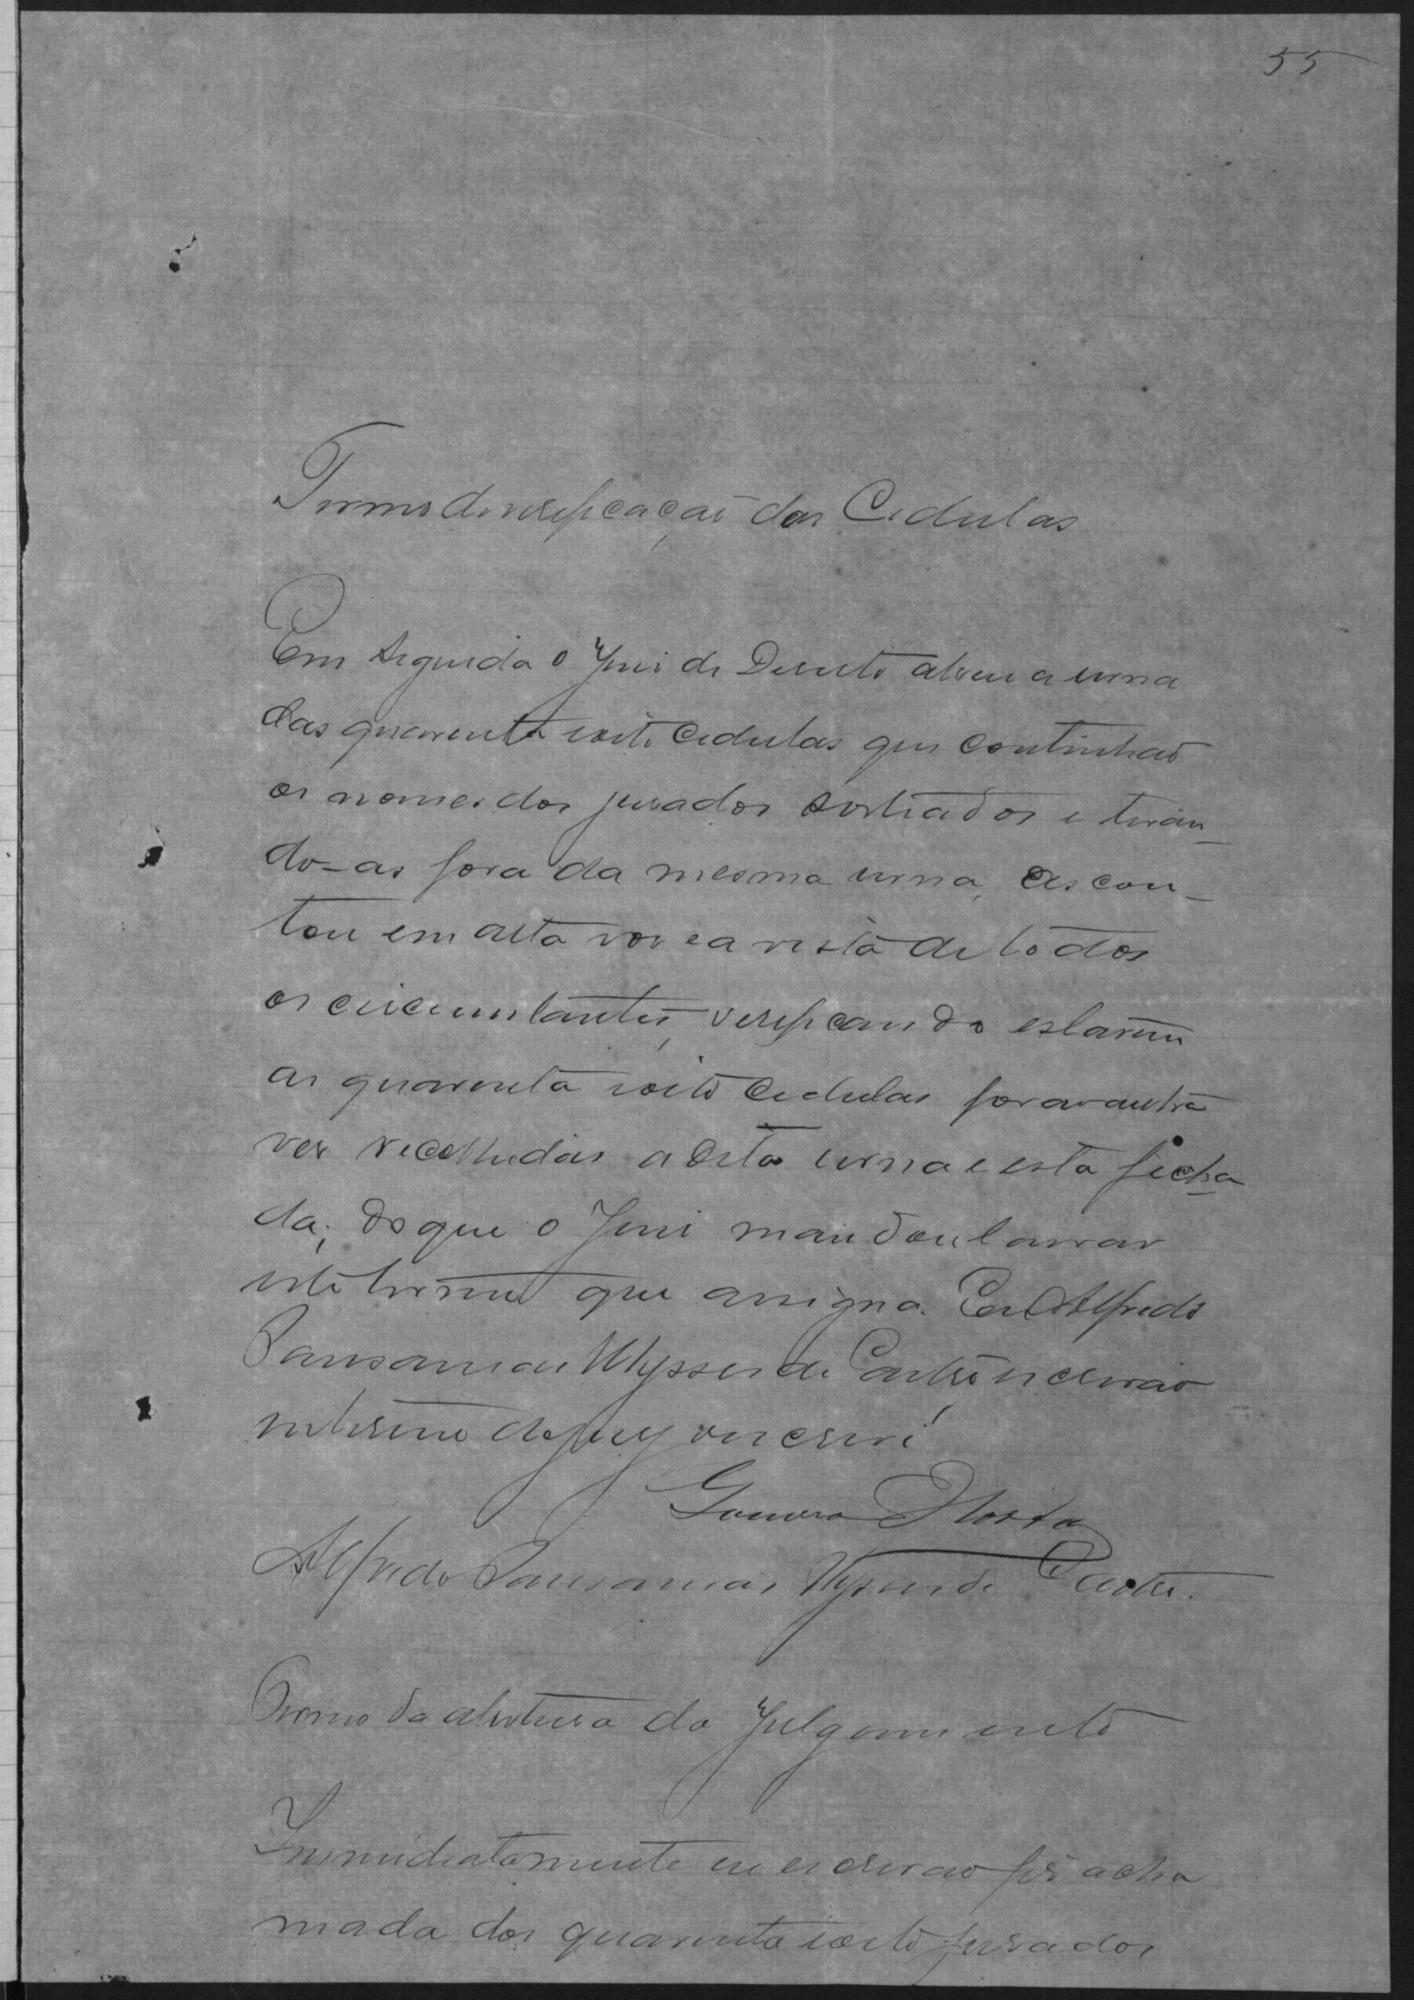 55
Termo de verificação das Cedulas
Em seguida o Juis de Direito abriu a urna
das quarenta e oito cedulas que continhão
os nomes dos jurados sorteados e tiran_
do-as fora da mesma urna, as con_
tou em alta vos e a vista de todos
os circumstantes, verificando estarem
as quarenta e oito cedulas foram outra
ves recolhidas a dita urna e esta fecha
da; do que o Juis mandou lavrar
este termo que assigna. Eu Alfredo
Pausanias Ulysses de Castro escrivão
interino do jury o escrevi
Gomero Horta
Alfredo Pausanias Ulysses de Castro.
Termo da abertura do Julgamento
Immediatamente eu escrivão fis a cha
mada dos quarenta e oito jurados